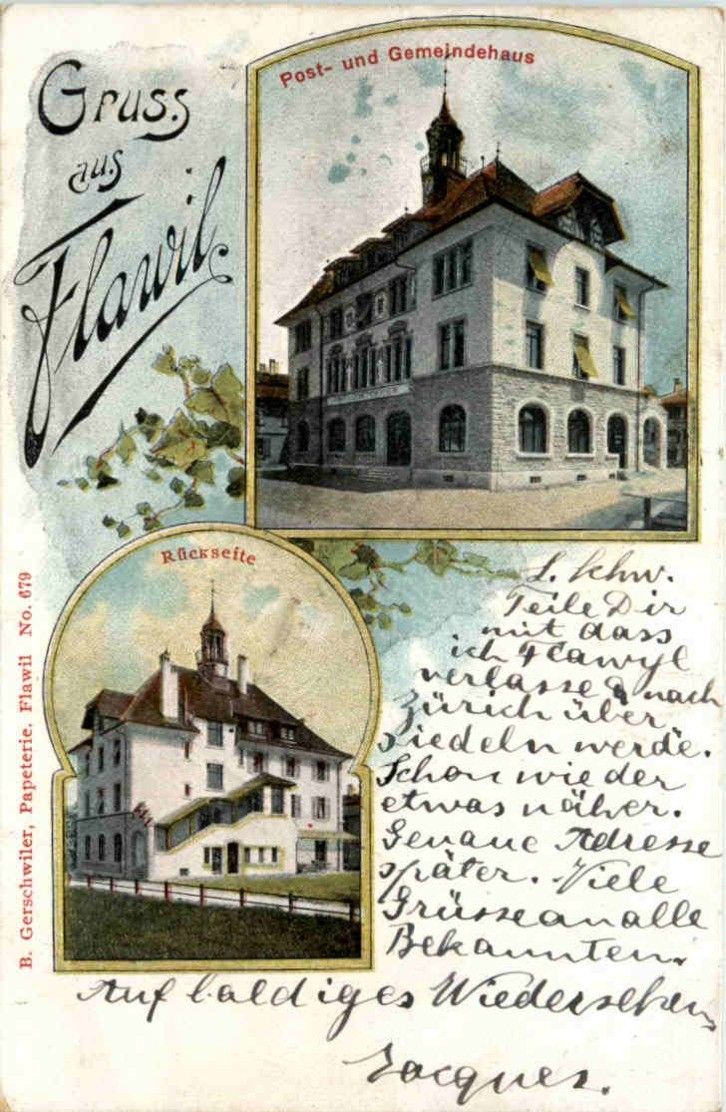 Gruss
aus
Flawil
Post- und Gemeindehaus
Rückseite
B. Gerschwiler, Papeterie. Flawil No. 679
L. Schw.
Teile Dir
mit dass
ich Flawyl
verlasse & nach
Zürich über
siedeln werde.
Schon wieder
etwas näher.
Genaue Adresse
später. Viele
Grüsse an alle
Bekannten.
Auf baldiges Wiedersehen
Jacques.